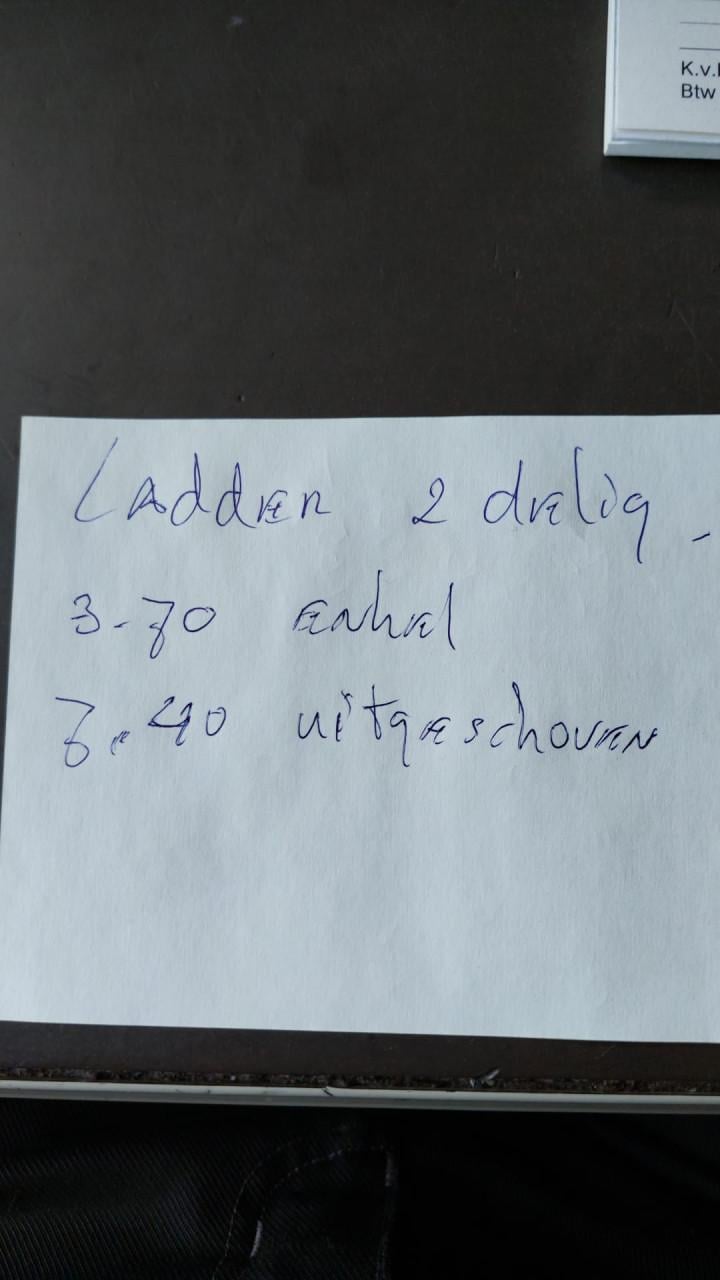 K.v.
Btw
Ladder 2 delig -
3-70 enkel
7.40 uitgeschoven